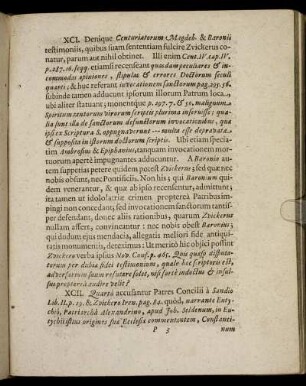 XCI. Denique Centuriatorum Magdeb. & Baronii
testimoniis, quibus suam sententiam fulcire Zvickerus co-
natur, parum aut nihil obtinet. Illi enim Cent. IV. cap. IV.
p. 287. 16. seqq. etiamsi recenseant quasdam peculiares & in-
commodas opiniones, stipulas & errores Doctorum seculi
quarti; & huc referant invocationem sanctorum pag. 295. 16.
subinde tamen adducant ipsorum illorum Patrum loca,
ubi aliter statuant; monentque p. 297. 7. & 50. malignum
Spiritum centurum virorum scriptis plurima inseruisse; qua-
lia sunt illa de sanctorum defunctorum invocationibus, qua
ipsi ex Scriptura S. oppugnaverunt --- multa esse depravata
& supposita in istorum doctorum scriptis. Ubi etiam specia-
tim Ambrosius & Epiphanius, tanquam invocationem mor-
tuorum aperte impugnantes adducuntur. A Baronio au-
tem suppetias petere quidem potest Zvickerus; sed quæ nec
nobis obsunt, nec Pontificiis. Non his; qui Baronium qui-
dem venerantur, & quæ ab ipso recensentur, admittunt,
ita tamen ut idololatriæ crimen propterea Patribus im-
pingi non concedant, sed invocationem sanctorum tantis-
per defendant, donec aliis rationibus, quarum Zvickerus
nullam affert, convincantur: nec nobis obest Baronius;
qui dudum ejus mendaciis, allegatis melioris fidei antiqui-
tatis monumentis, deteximus: Ut merito hic objici possint
Zvickero verba ipsius Nob. Conf. p. 461. Quis quæso disputa-
torum per dubia fidei testimonium, quale hoc scriptum est,
adversarium suum refutare solet, nisi forte indoctus & insul-
sus propterea audire velit?
XCII. Quarto accusantur Patres Concilii à Sandio
Lib. II. p. 19. & Zvickero Iren. pag. 84. quòd, narrante Euty-
chio, Patriarcha Alexandrino, apud Joh. Seldenum, in Eu-
tychii istius origines suæ Ecclesiæ commentantem, Constanti-
P 3
num